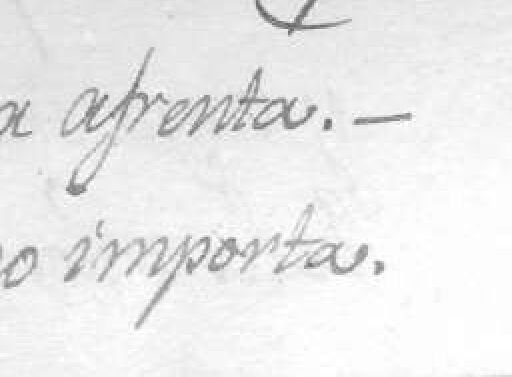 a afrenta. —
o importa.